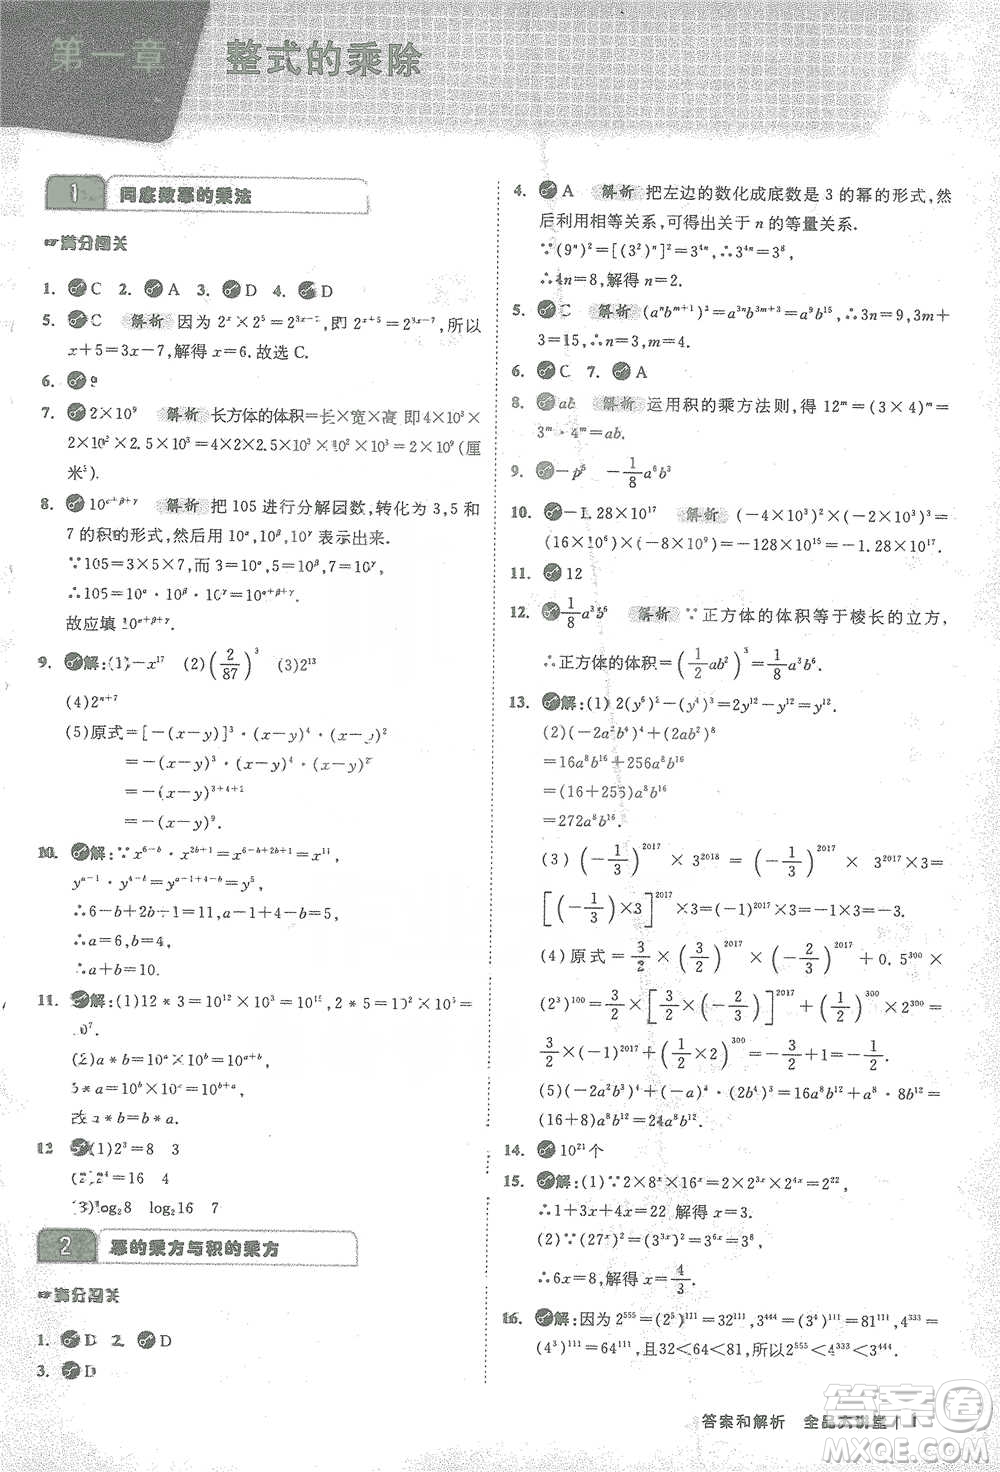 第一章 整式的乘除
1 同底数幂的乘法
☞满分闯关
1. C 2. A 3. D 4. D
5. C 解析 因为 2ˣ×2⁵=2³ˣ⁻⁷,即 2ˣ⁺⁵=2³ˣ⁻⁷,所以
x+5=3x-7,解得 x=6.故选 C.
6. 9
7. 2×10⁹ 解析 长方体的体积=长×宽×高 即 4×10²×
2×10²×2.5×10³=4×2×2.5×10³×10²×10²(厘
米³).
8. 10^(α+β+γ) 解析 把 105 进行分解因数,转化为 3,5 和
7 的积的形式,然后用 10^α,10^β,10^γ 表示出来.
∵105=3×5×7,而 3=10^α,5=10^β,7=10^γ,
∴105=10^α·10^β·10^γ=10^(α+β+γ).
故应填 10^(α+β+γ).
9. 解:(1)-x¹⁷ (2)(2/87)³ (3)2¹³
(4)2ⁿ⁺⁷
(5)原式=[-(x-y)]³·(x-y)⁴·(x-y)²
=-(x-y)³·(x-y)⁴·(x-y)²
=-(x-y)³⁺⁴⁺²
=-(x-y)⁹.
10. 解:∵x^(6-b)·x^(2b+1)=x^(6-b+2b+1)=x¹¹,
y^(a-1)·y^(4-b)=y^(a-1+4-b)=y⁵,
∴6-b+2b+1=11,a-1+4-b=5,
∴a=6,b=4,
∴a+b=10.
11. 解:(1)12*3=10¹²×10³=10¹⁵,2*5=10²×10⁵=
10⁷.
(2)a*b=10ᵃ×10ᵇ=10ᵃ⁺ᵇ,
b*a=10ᵇ×10ᵃ=10ᵇ⁺ᵃ,
故 a*b=b*a.
12 (1)2³=8 3
(2)2⁴=16 4
(3)log₂8 log₂16 7
2 幂的乘方与积的乘方
☞满分闯关
1. D 2. D
3. D
4. A 解析 把左边的数化成底数是 3 的幂的形式,然
后利用相等关系,可得出关于 n 的等量关系.
∵(9ⁿ)²=[(3²)ⁿ]²=3⁴ⁿ,∴3⁴ⁿ=3⁸,
∴4n=8,解得 n=2.
5. C 解析 (aⁿbᵐ⁺¹)³=a³ⁿb³ᵐ⁺³=a⁹b¹⁵,∴3n=9,3m+
3=15,∴n=3,m=4.
6. C 7. A
8. ab 解析 运用积的乘方法则,得 12ᵐ=(3×4)ᵐ=
3ᵐ·4ᵐ=ab.
9. -p⁵ -1/8a⁶b³
10. -1.28×10¹⁷ 解析 (-4×10³)²×(-2×10³)³=
(16×10⁶)×(-8×10⁹)=-128×10¹⁵=-1.28×10¹⁷.
11. 12
12. 1/8a³b⁶ 解析 ∵正方体的体积等于棱长的立方,
∴正方体的体积=(1/2ab²)³=1/8a³b⁶.
13. 解:(1)2(y⁶)²-(y⁴)³=2y¹²-y¹²=y¹².
(2)(-2a²b⁴)⁴+(2ab²)⁸
=16a⁸b¹⁶+256a⁸b¹⁶
=(16+256)a⁸b¹⁶
=272a⁸b¹⁶.
(3)(-1/3)²⁰¹⁷×3²⁰¹⁸=(-1/3)²⁰¹⁷×3²⁰¹⁷×3=
[(-1/3)×3]²⁰¹⁷×3=(-1)²⁰¹⁷×3=(-1)×3=-3.
(4)原式=3/2×(3/2)²⁰¹⁷×(-2/3)²⁰¹⁷+0.5³⁰⁰×
(2³)¹⁰⁰=3/2×[3/2×(-2/3)]²⁰¹⁷+(1/2)³⁰⁰×2³⁰⁰=
3/2×(-1)²⁰¹⁷+(1/2×2)³⁰⁰=-3/2+1=-1/2.
(5)(-2a²b³)⁴+(-a)⁸·(2b⁴)³=16a⁸b¹²+a⁸·8b¹²=
(16+8)a⁸b¹²=24a⁸b¹².
14. 10²¹个
15. 解:(1)∵2×8ˣ×16ˣ=2×2³ˣ×2⁴ˣ=2¹⁺⁷ˣ=2²²,
∴1+3x+4x=22,解得 x=3.
(2)∵(27ˣ)²=(3³ˣ)²=3⁶ˣ=3⁸,
∴6x=8,解得 x=4/3.
16. 解:因为 2⁵⁵⁵=(2⁵)¹¹¹=32¹¹¹,3⁴⁴⁴=(3⁴)¹¹¹=
81¹¹¹,4³³³=(4³)¹¹¹=64¹¹¹,且32<64<81,所以2⁵⁵⁵<4³³³<3⁴⁴⁴.
答案和解析 全品大讲堂 | 1
答案圈
MXQE.COM